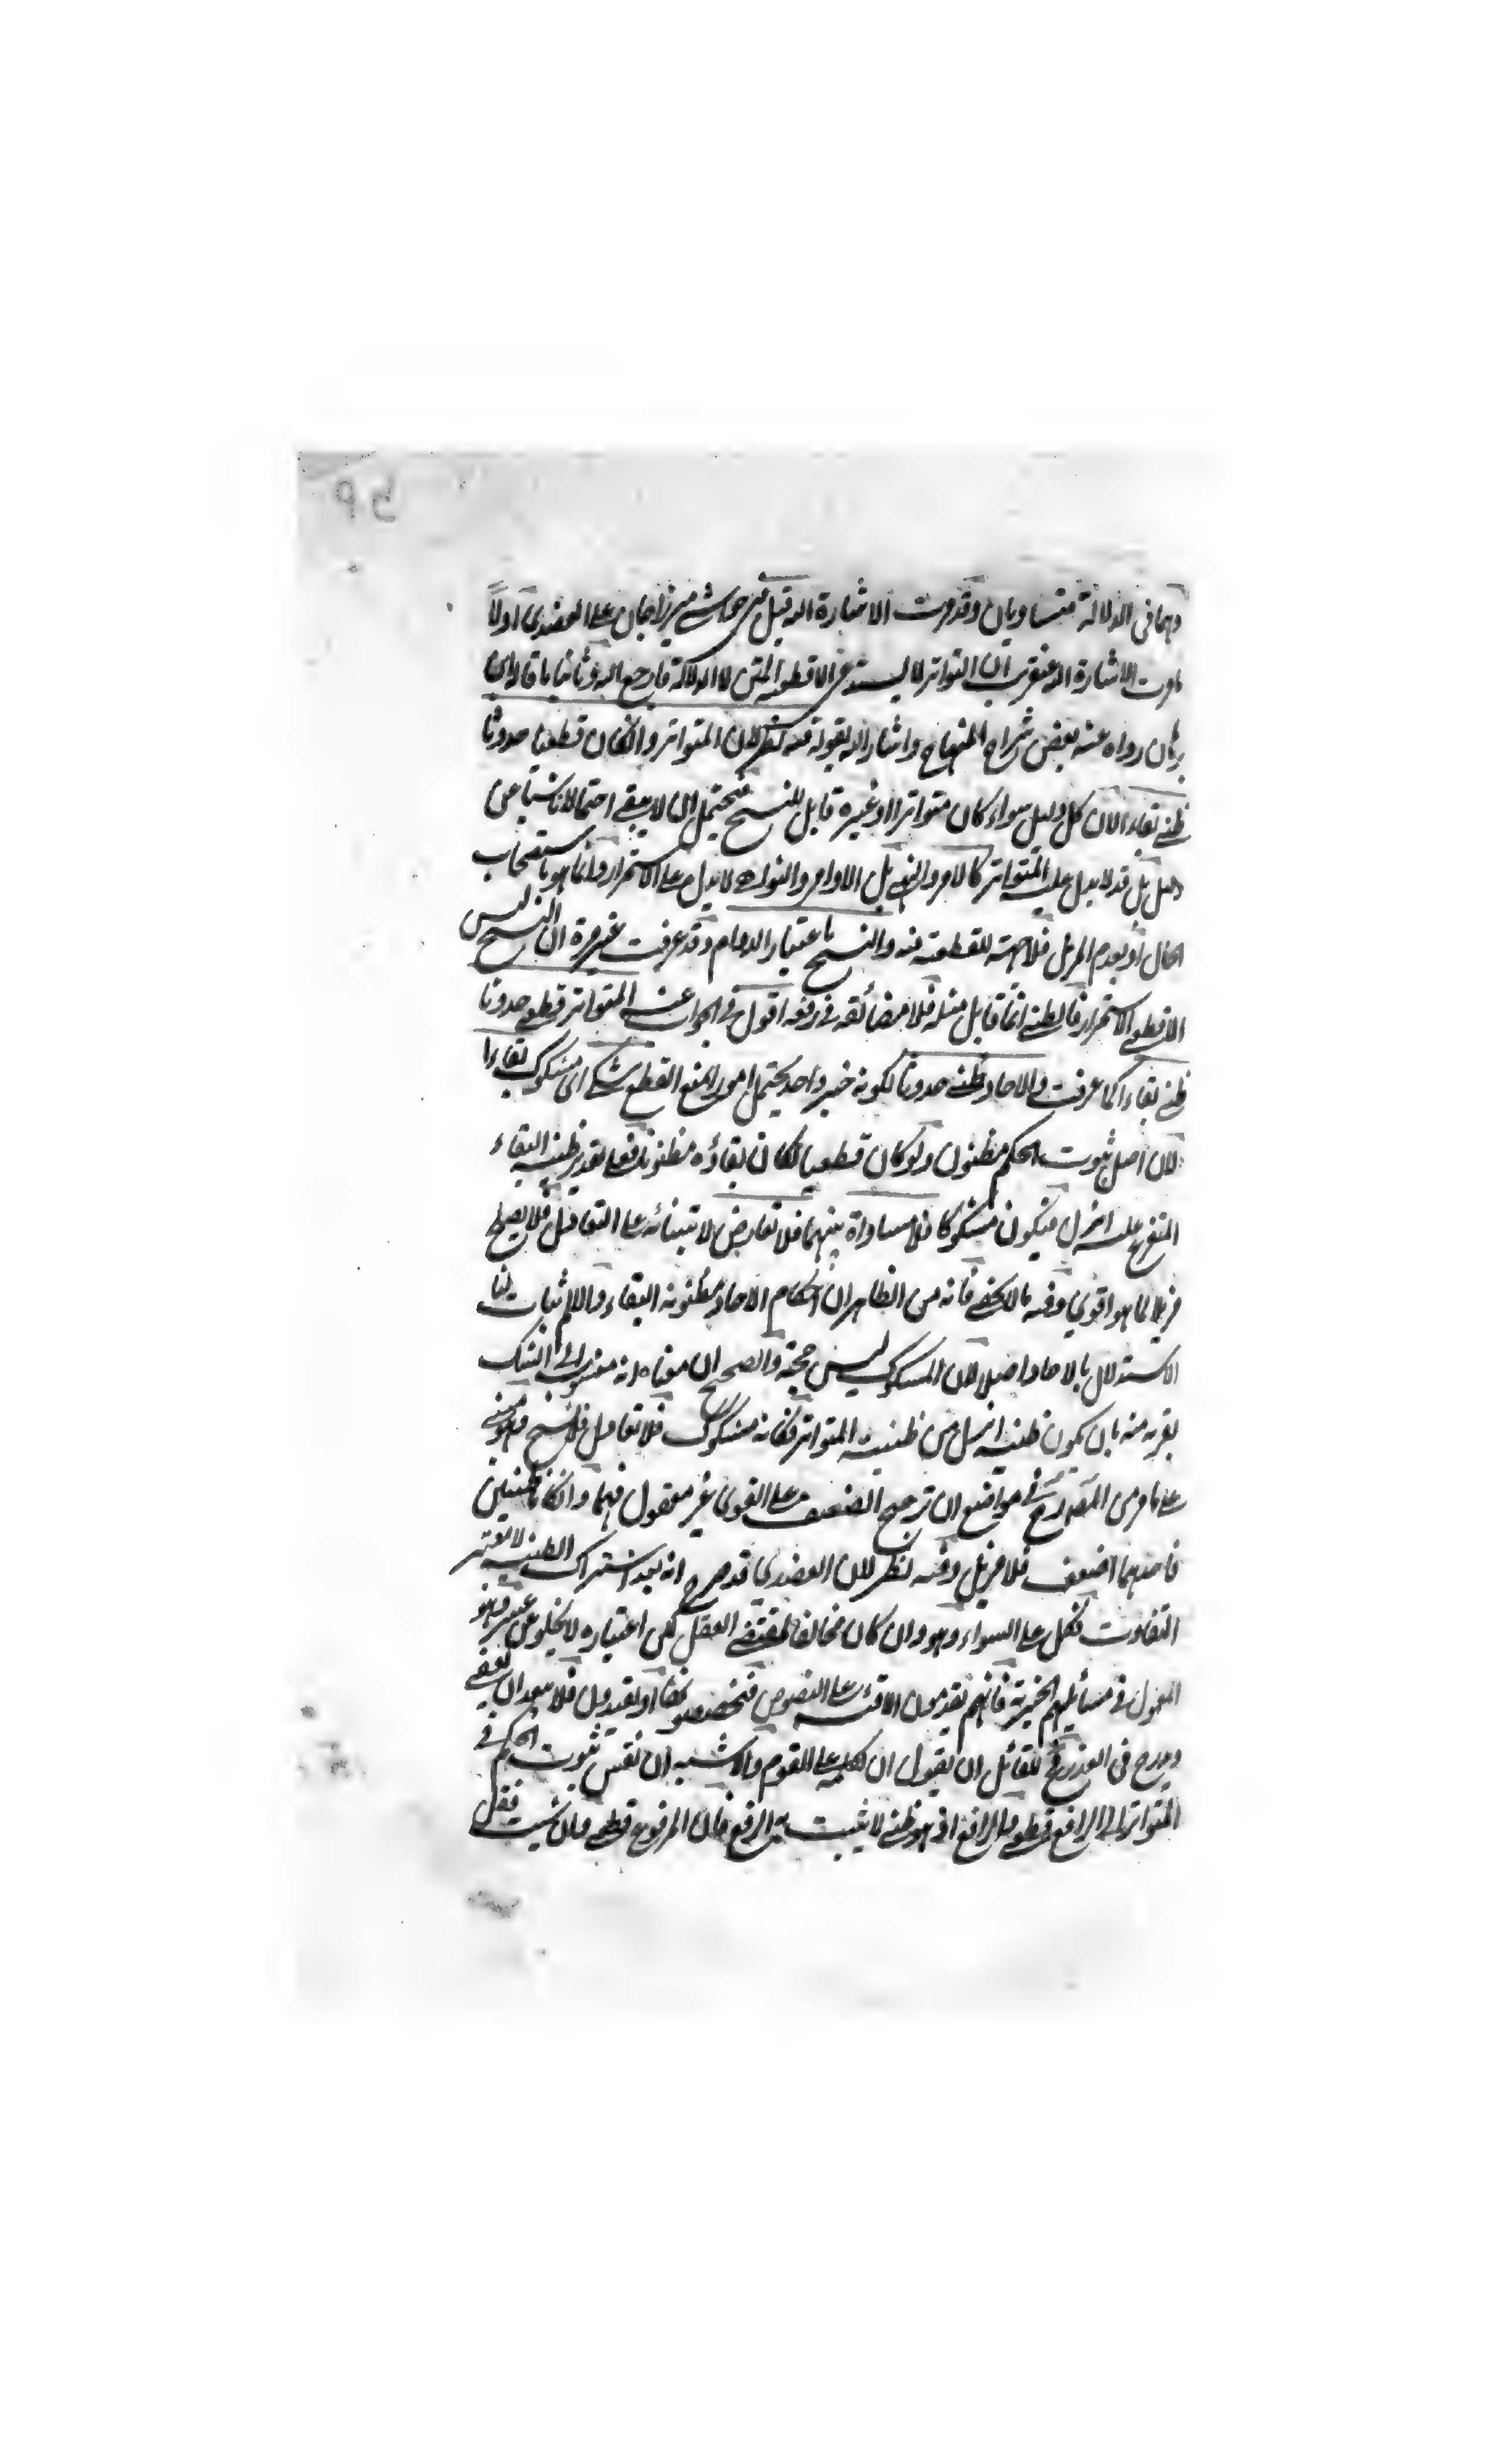 وهما فى الدلالة متساويان وقد مرت الاشارة اليه قبل من حواشى ميرزاجان على العضدى اولاً
ما مرت الاشارة اليه عنقريب ان التواتر لا يستدعى الا قطعية المتن لا الدلالة فارجع اليه وثانيا ما قال ابن
برهان رواه عنه بعض شراح المنهاج واشار اليه بقوله فيه نظر لان المتواتر والكان قطعيا حدوثا
ظنى بقاء لان كل دليل سواء كان متواترا او غيره قابل للنسخ فيحتمل ان لا يبقى احتمالا ناشيا عن
دليل بل قد لا يدل عليه المتواتر كالامر والنهى بل الاوامر والنواهى لا يدل على الاستمرار وانما هو باستصحاب
الحال او بعدم المزيل فلا جهة للقطعية فيه والنسخ باعتبار الدوام وقد عرفت غير مرة ان النسخ ليس
الا قطع الاستمرار فالظنى انما قابل مثله فلا مضائقة فى رفعه اقول فى الجواب عنه المتواتر قطعى حدوثا
ظنى بقاء كما عرفت والاحاد ظنى حدوثا لكونه خبر واحد يحتمل امورا تمنع القطع شكى اى مشكوك بقاءا
لان اصل ثبوت الحكم مظنون ولو كان قطعيا لكان بقاؤه مظنونا فعلى تقدير ظنية البقاء
المتفرع عليه انزل فيكون مشكوكا فلا مساواة بينهما فلا تعارض لابتنائه على التعادل فلا يصلح
مزيلا لما هو اقوى وفيه ما لا يخفى فانه من الظاهر ان احكام الاحاد مظنونة البقاء والا لم يثبت لنا
الاستدلال بالاحاد اصلا لان المشكوك ليس حجة والصحيح ان معناه انه منسوب الى الشك
لقربه منه بان يكون ظنيته انزل من ظنية المتواتر فكانه مشكوك فلا تعادل فلا نسخ وهو مبنى
على ما مر من المصنف فى مواضع ان ترجيح الضعيف على القوى غير معقول فهما وان كانا ظنيين
فاحدهما اضعف فلا مزيل وفيه نظر لان العضدى قد صرح انه بعد اشتراك الظنية لا يعتبر
التفاوت فكل على السواء وهو وان كان مخالفا لمقتضى العقل لكن اعتباره لا يخلو عن عسر وهو
المعول فى مسائلهم الخبرية فانهم يقدمون الاقيسة على النصوص فيخصصون او يقيدون فلا يبعد ان
للقائل ان يقول ان على القوم والاشبه ان نفس ثبوت الحكم فى
المتواتر الى الرافع قطعى والرافع اذ هو ظنى لا يثبت به الرفع فان المرفوع قطعى وان شئت فقل